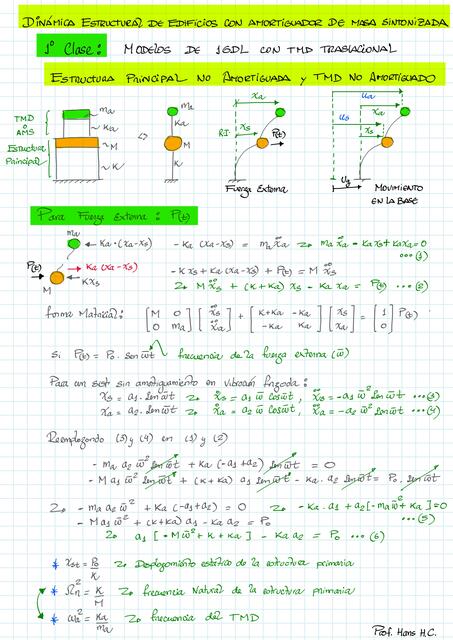 DINÁMICA ESTRUCTURAL DE EDIFICIOS CON AMORTIGUADOR DE MASA SINTONIZADA
1° Clase: MODELOS DE 1GDL CON TMD TRASLACIONAL
ESTRUCTURA PRINCIPAL NO AMORTIGUADA y TMD NO AMORTIGUADO
TMD ó AMS
Estructura Principal
ma
Ka
M
K
ma
Ka
M
K
xa
xs
RI
P(t)
Fuerza Externa
xa
ua
us
xs
ug
MOVIMIENTO EN LA BASE
Para Fuerza Externa: P(t)
ma
Ka·(xa-xs)
-Ka (xa-xs) = ma ẍa → ma ẍa - Kaxs + Kaxa = 0 ...(1)
P(t)
Ka (xa-xs)
Kxs
M
-Kxs + Ka (xa-xs) + P(t) = M ẍs
→ M ẍs + (K+Ka) xs - Ka xa = P(t) ...(2)
forma Matricial: [M 0; 0 ma] [ẍs; ẍa] + [K+Ka -Ka; -Ka Ka] [xs; xa] = [1; 0] P(t)
Si P(t) = Po. Sen ω̄t → frecuencia de la fuerza externa (ω̄)
Para un sist sin amortiguamiento en vibración forzada:
xs = a1. Sen ω̄t → ẋs = a1 ω̄ cos ω̄t, ẍs = -a1 ω̄² Sen ω̄t ...(3)
xa = a2. Sen ω̄t → ẋa = a2 ω̄ cos ω̄t, ẍa = -a2 ω̄² Sen ω̄t ...(4)
Reemplazando (3) y (4) en (1) y (2)
-ma a2 ω̄² Sen ω̄t + Ka (-a1+a2) Sen ω̄t = 0
-M a1 ω̄² Sen ω̄t + (K+Ka) a1 Sen ω̄t - Ka. a2 Sen ω̄t = Po. Sen ω̄t
→ -ma a2 ω̄² + Ka (-a1+a2) = 0 → -Ka. a1 + a2[-ma ω̄² + Ka] = 0 ...(5)
-M a1 ω̄² + (K+Ka) a1 - Ka a2 = Po
→ a1 [-M ω̄² + K + Ka] - Ka a2 = Po ...(6)
* xst = Po/K → Desplazamiento estático de la estructura primaria
* Ωn² = K/M → frecuencia Natural de la estructura primaria
* ωa² = Ka/ma → frecuencia del TMD
Prof. Hans H.C.